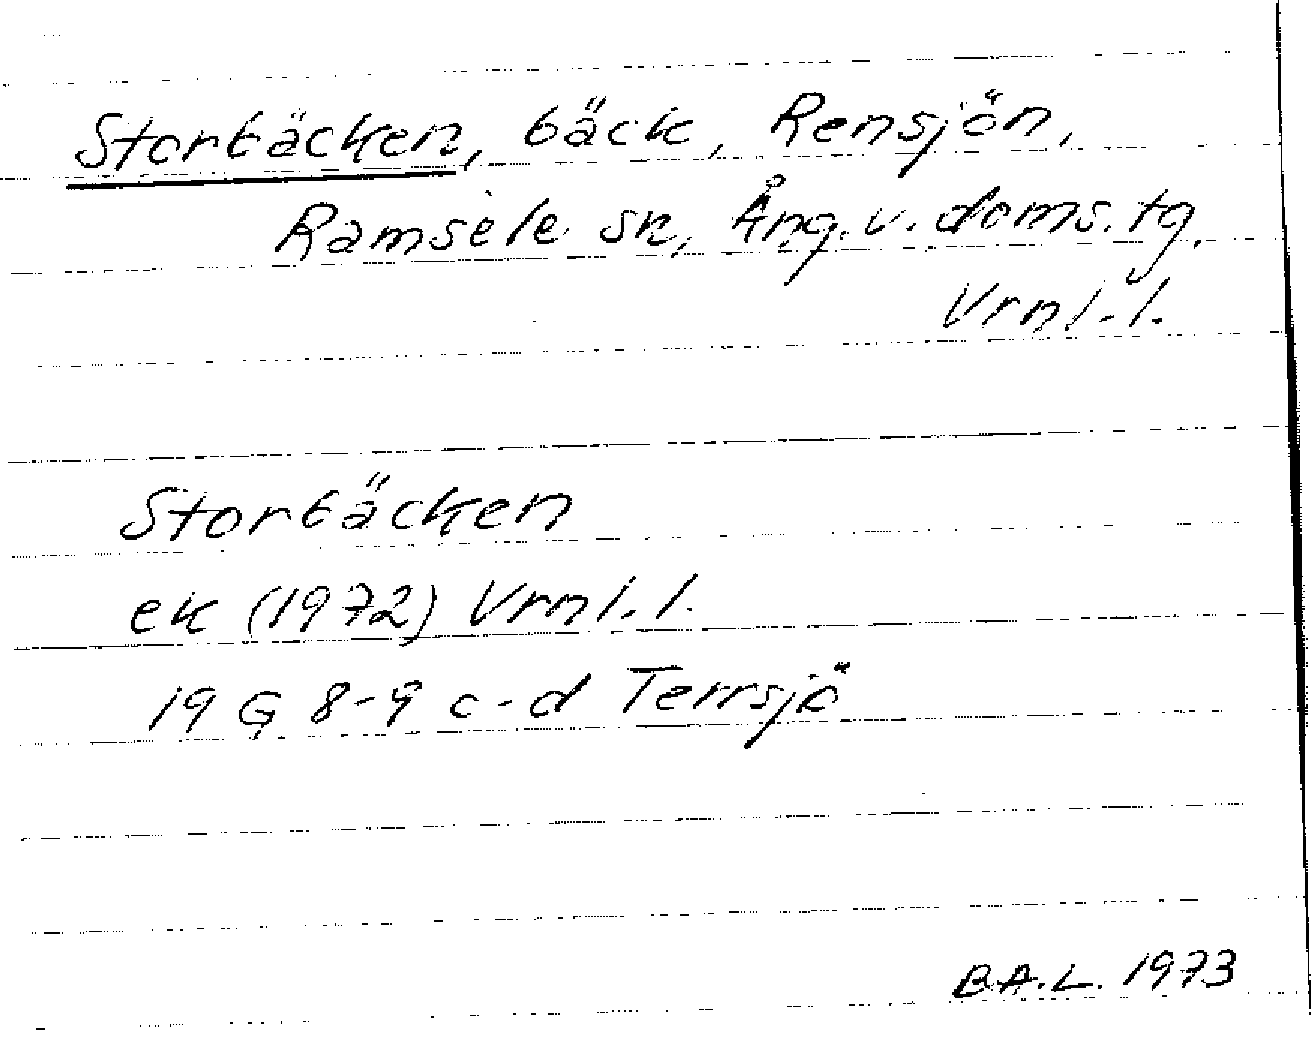 Storbäcken, bäck, Rensjön,
Ramsele sn, Ång. v. doms. tg.
Vrnl. l.
Storbäcken
ek (1972) Vrnl. l.
19 G 8-9 c-d Terrsjö
B.A.L. 1973